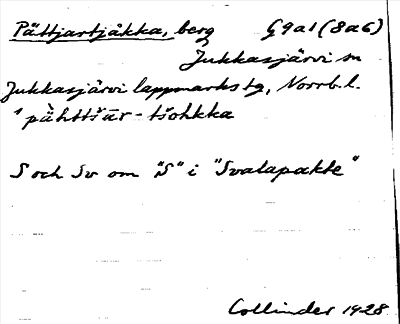 Pättjartjåkka, berg G9a1 (8a6)
Jukkasjärvi sn
Jukkasjärvi lappmarks tg, Norrb. l.
S och Sv om "S" i "Svalapakte"
Collinder 1928